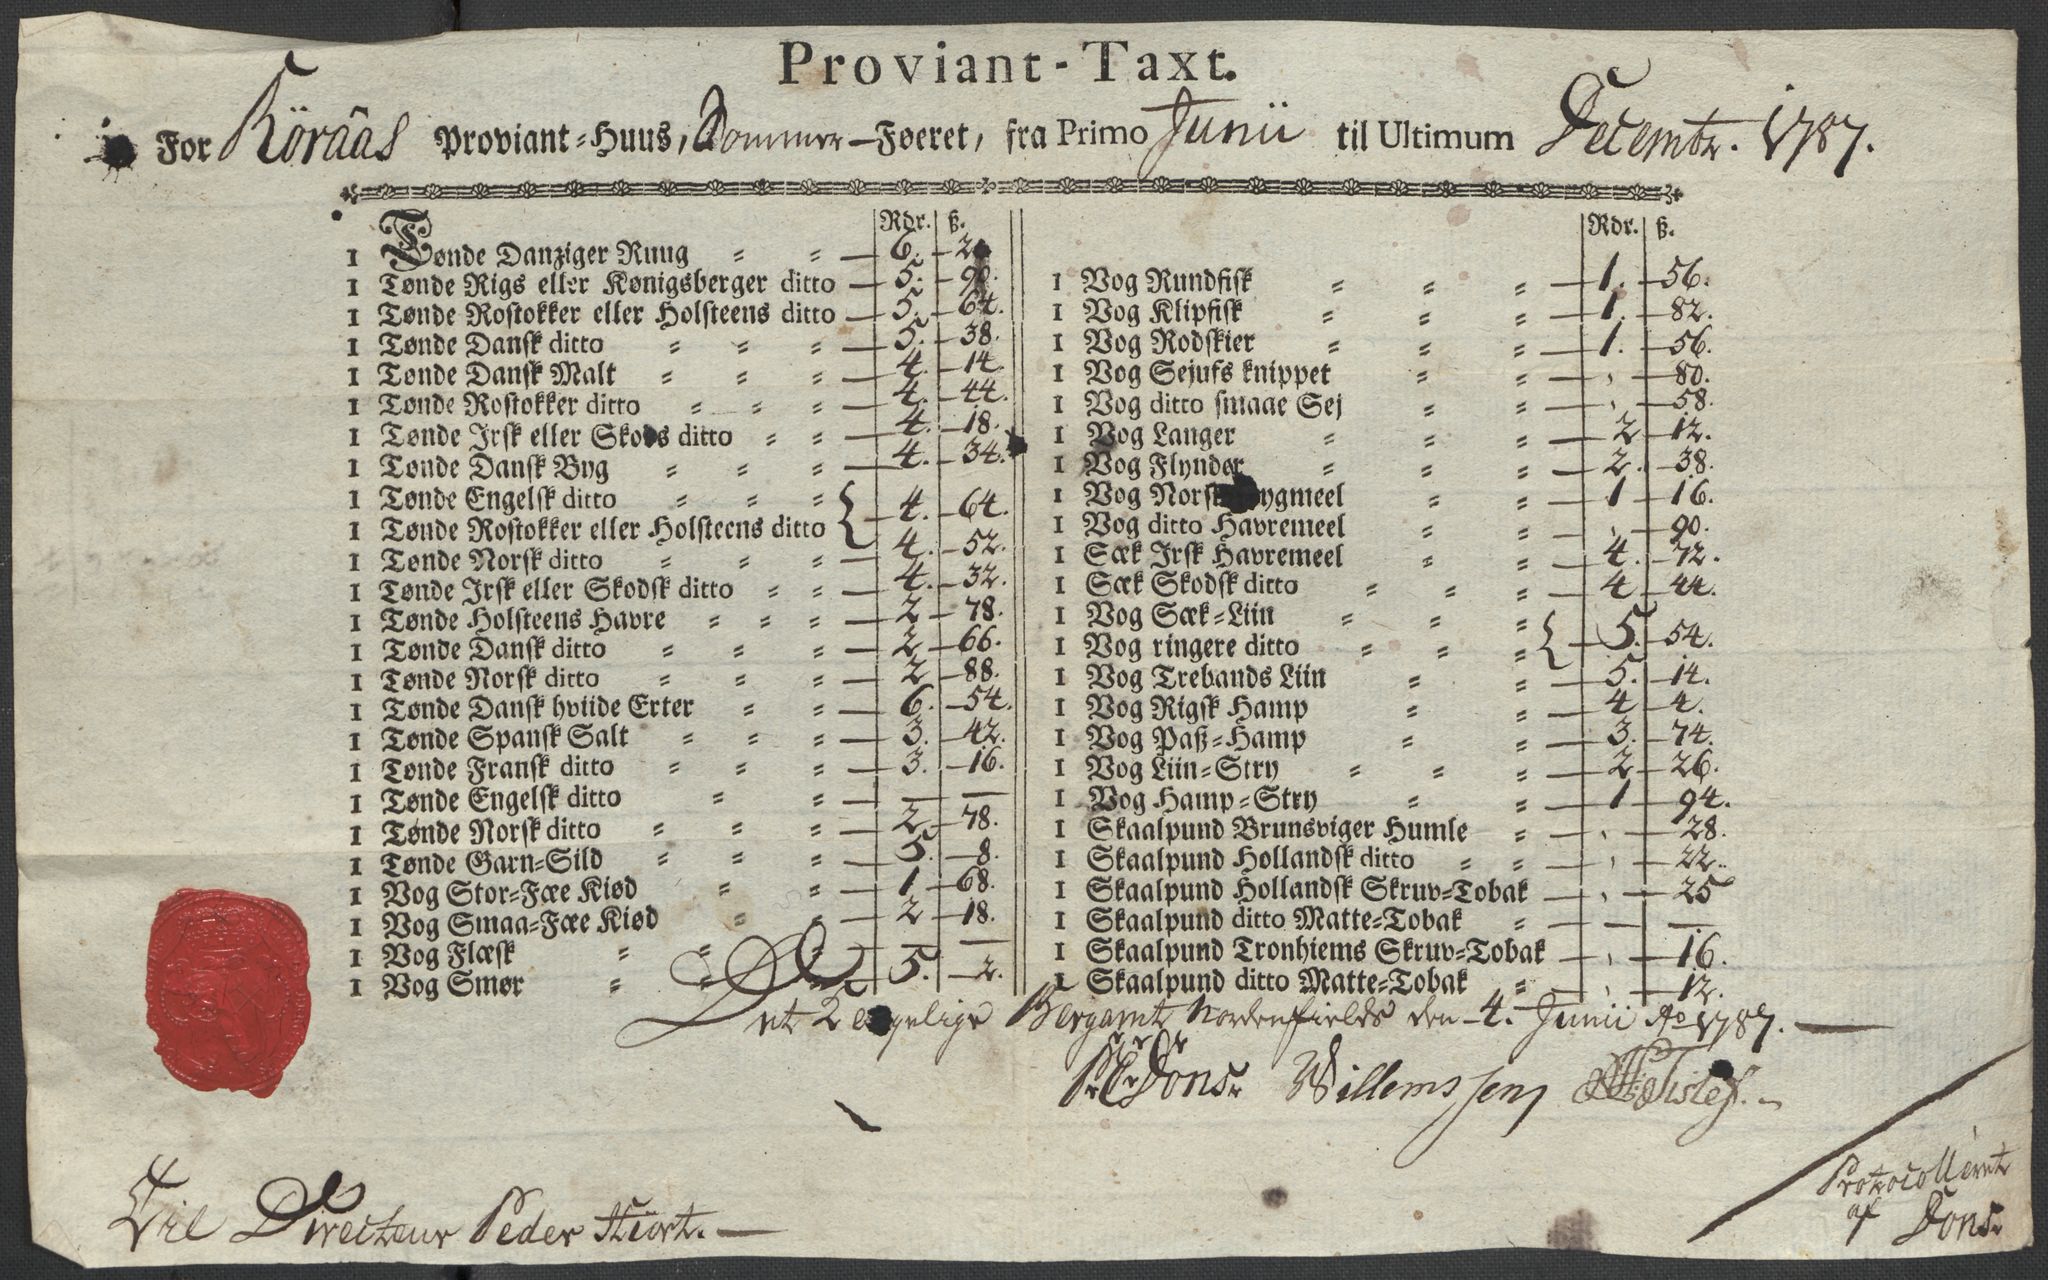 Proviant-Taxt.
For Röraas Proviant-Huus, Sommer-Føeret, fra Primo Junii til Ultimum Decembr. 1787.
Rdr. ß.
1 Tønde Danziger Ruug 6. 2
1 Tønde Rigs eller Kønigsberger ditto 5. 90.
1 Tønde Rostokker eller Holsteens ditto 5. 64.
1 Tønde Dansk ditto 5. 38.
1 Tønde Dansk Malt 4. 14.
1 Tønde Rostokker ditto 4. 44.
1 Tønde Irsk eller Skods ditto 4. 18.
1 Tønde Dansk Byg 4. 34.
1 Tønde Engelsk ditto
1 Tønde Rostokker eller Holsteens ditto } 4. 64.
1 Tønde Norsk ditto 4. 52.
1 Tønde Irsk eller Skodsk ditto 4. 32.
1 Tønde Holsteens Havre 2 78.
1 Tønde Dansk ditto 2 66.
1 Tønde Norsk ditto 2 88.
1 Tønde Dansk hviide Erter 6. 54.
1 Tønde Spansk Salt 3. 42.
1 Tønde Fransk ditto 3. 16.
1 Tønde Engelsk ditto — —
1 Tønde Norsk ditto 2. 78.
1 Tønde Garn-Sild 5. 8.
1 Vog Stor-Fæe Kiød 1. 68.
1 Vog Smaa-Fæe Kiød 2 18.
1 Vog Flæsk — —
1 Vog Smør 5. 2.
Rdr. ß.
1 Vog Rundfisk 1. 56.
1 Vog Klipfisk 1. 82.
1 Vog Rodskier 1. 56.
1 Vog Sejufs knippet . 80.
1 Vog ditto smaae Sej . 58.
1 Vog Langer 2 12.
1 Vog Flynder 2. 38.
1 Vog Norsk Bygmeel 1 16.
1 Vog ditto Havremeel . 90.
1 Sæk Irsk Havremeel 4. 72.
1 Sæk Skodsk ditto 4 44.
1 Vog Sæk-Liin
1 Vog ringere ditto } 5. 54.
1 Vog Trebands Liin 5. 14.
1 Vog Rigsk Hamp 4 4.
1 Vog Paß-Hamp 3. 74.
1 Vog Liin-Stry 2 26.
1 Vog Hamp-Stry 1 94.
1 Skaalpund Brunsviger Humle . 28.
1 Skaalpund Hollandsk ditto . 22.
1 Skaalpund Hollandsk Skruv-Tobak . 25
1 Skaalpund ditto Matte-Tobak — —
1 Skaalpund Tronhiems Skruv-Tobak . 16.
1 Skaalpund ditto Matte-Tobak . 12.
Det Kongelige Bergamt Nordenfields den 4. Junii Ao 1787.
Dons. Willemssen
Til Directeur Peder Hiort.
Protocolleret
af Dons.